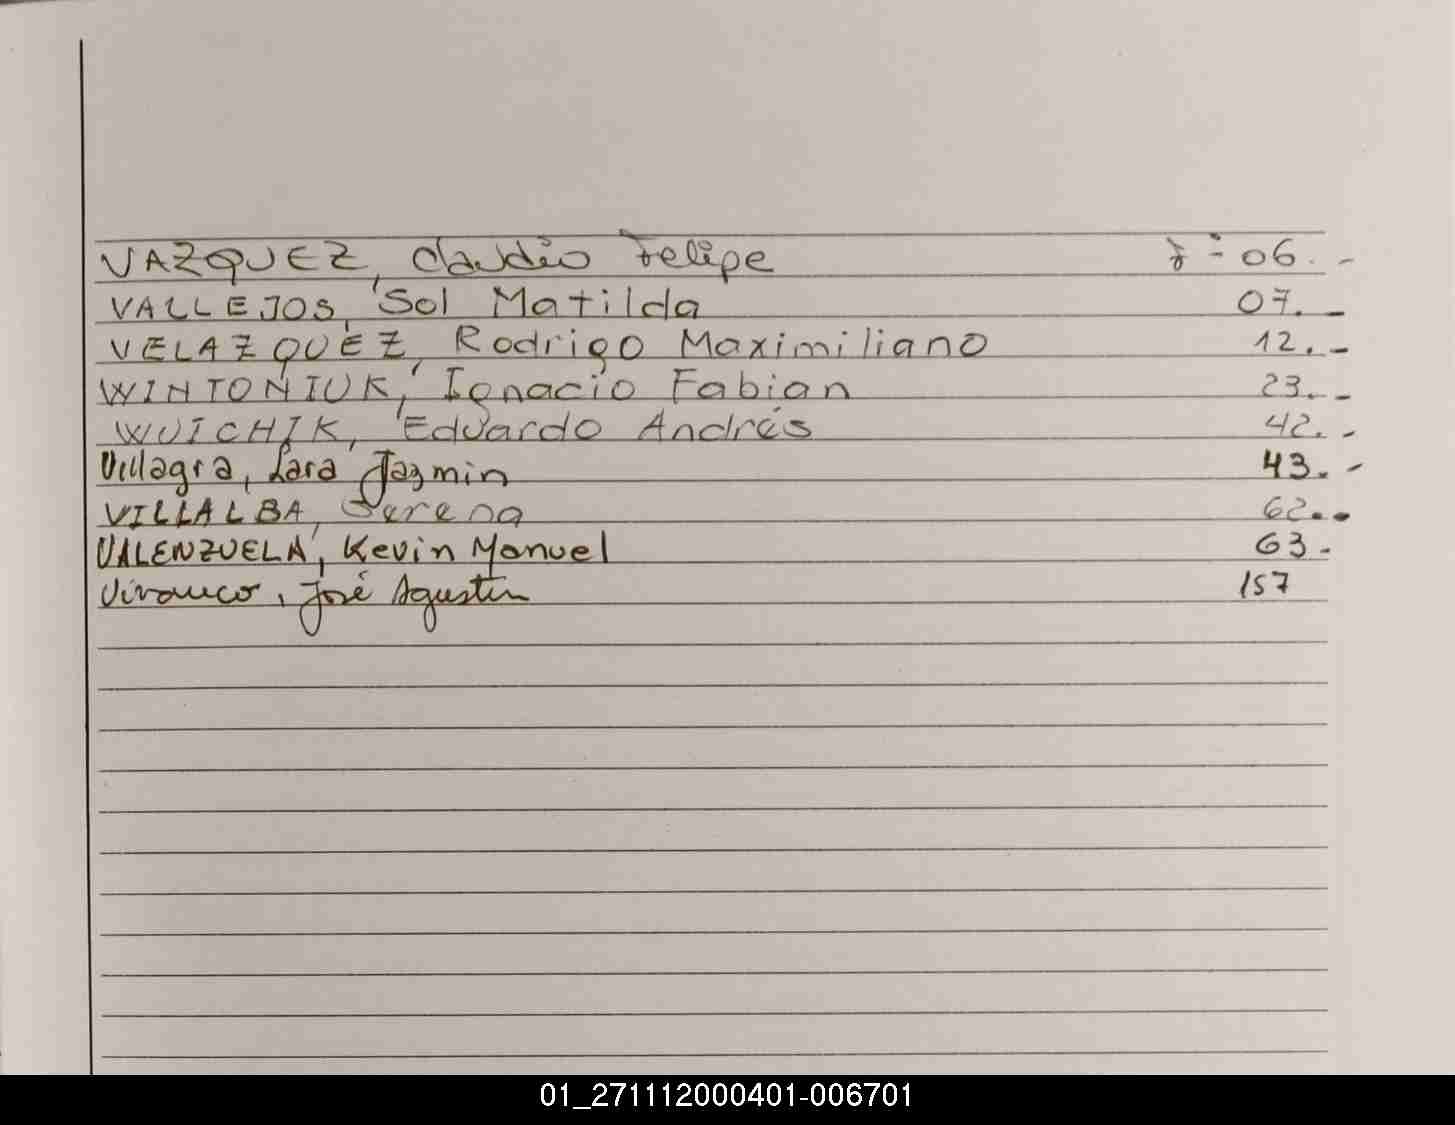 VAZQUEZ, Claudio Felipe f - 06. -
VALLEJOS, Sol Matilda 07. -
VELAZQUEZ, Rodrigo Maximiliano 12. -
WINTONIUK, Ignacio Fabian 23. -
WUICHIK, Eduardo Andrés 42. -
Villagra, Lara Jazmin 43. -
VILLALBA, Serena 62. -
VALENZUELA, Kevin Manuel 63. -
José Agustin 157
01_271112000401-006701